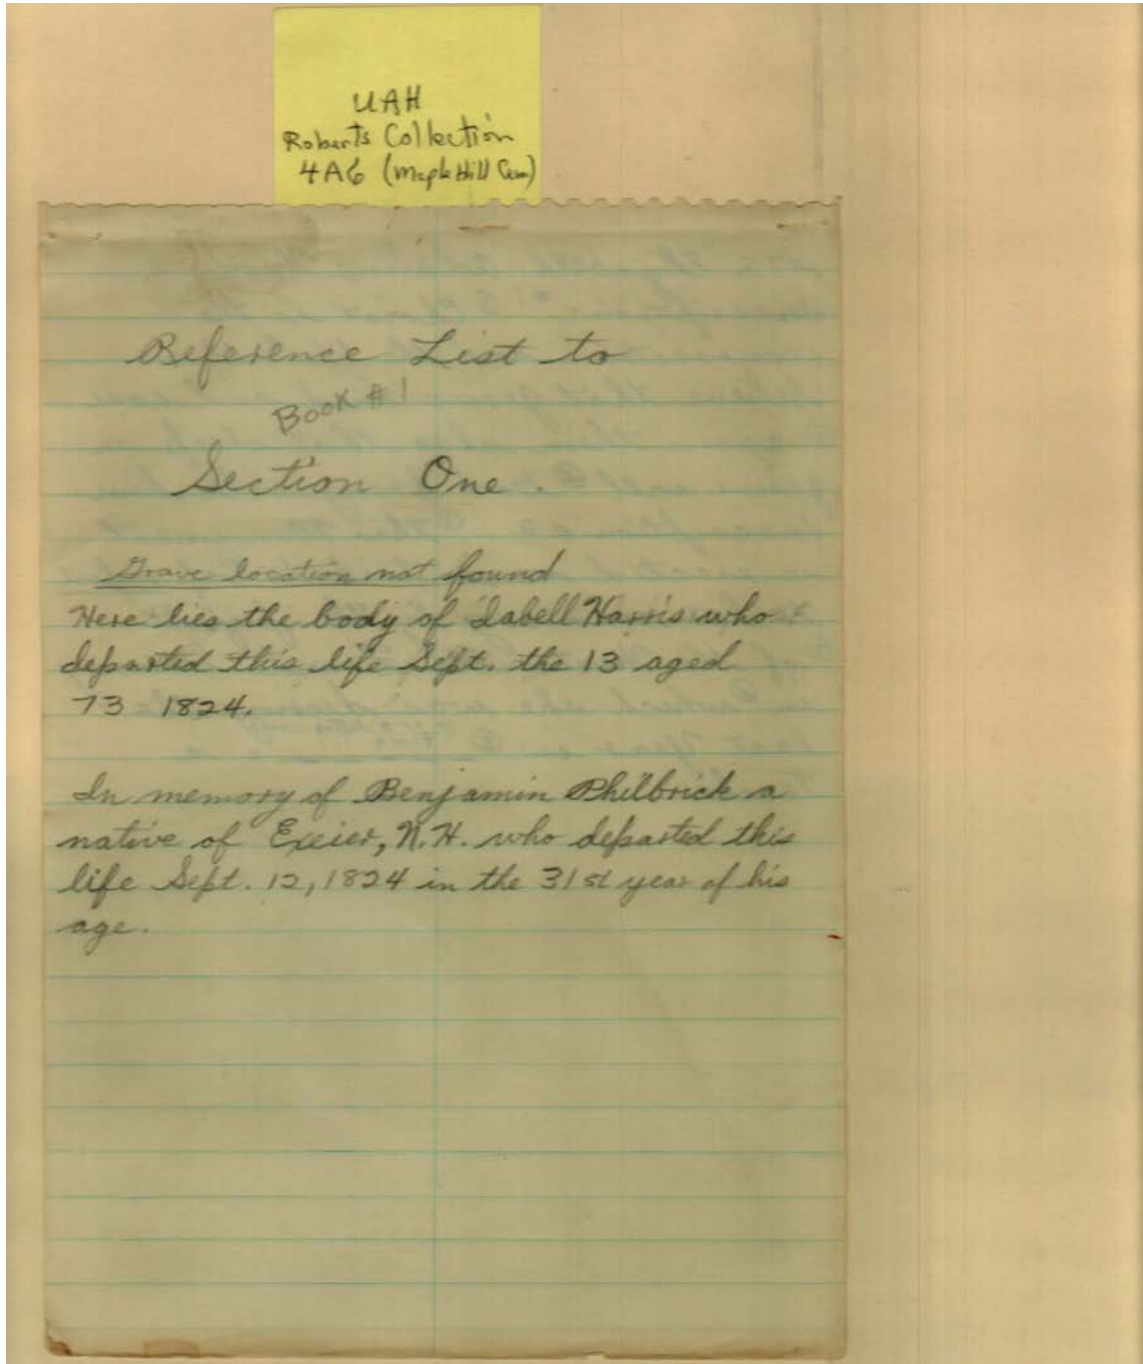 UAH
Roberts Collection
4A6 (Maple Hill Cem)
Reference List to
Book #1
Section One.
Grave location not found
Here lies the body of Isabell Harris who
departed this life Sept. the 13 aged
73 1824.
In memory of Benjamin Philbrick a
native of Exeier, N.H. who departed this
life Sept. 12, 1824 in the 31st year of his
age.